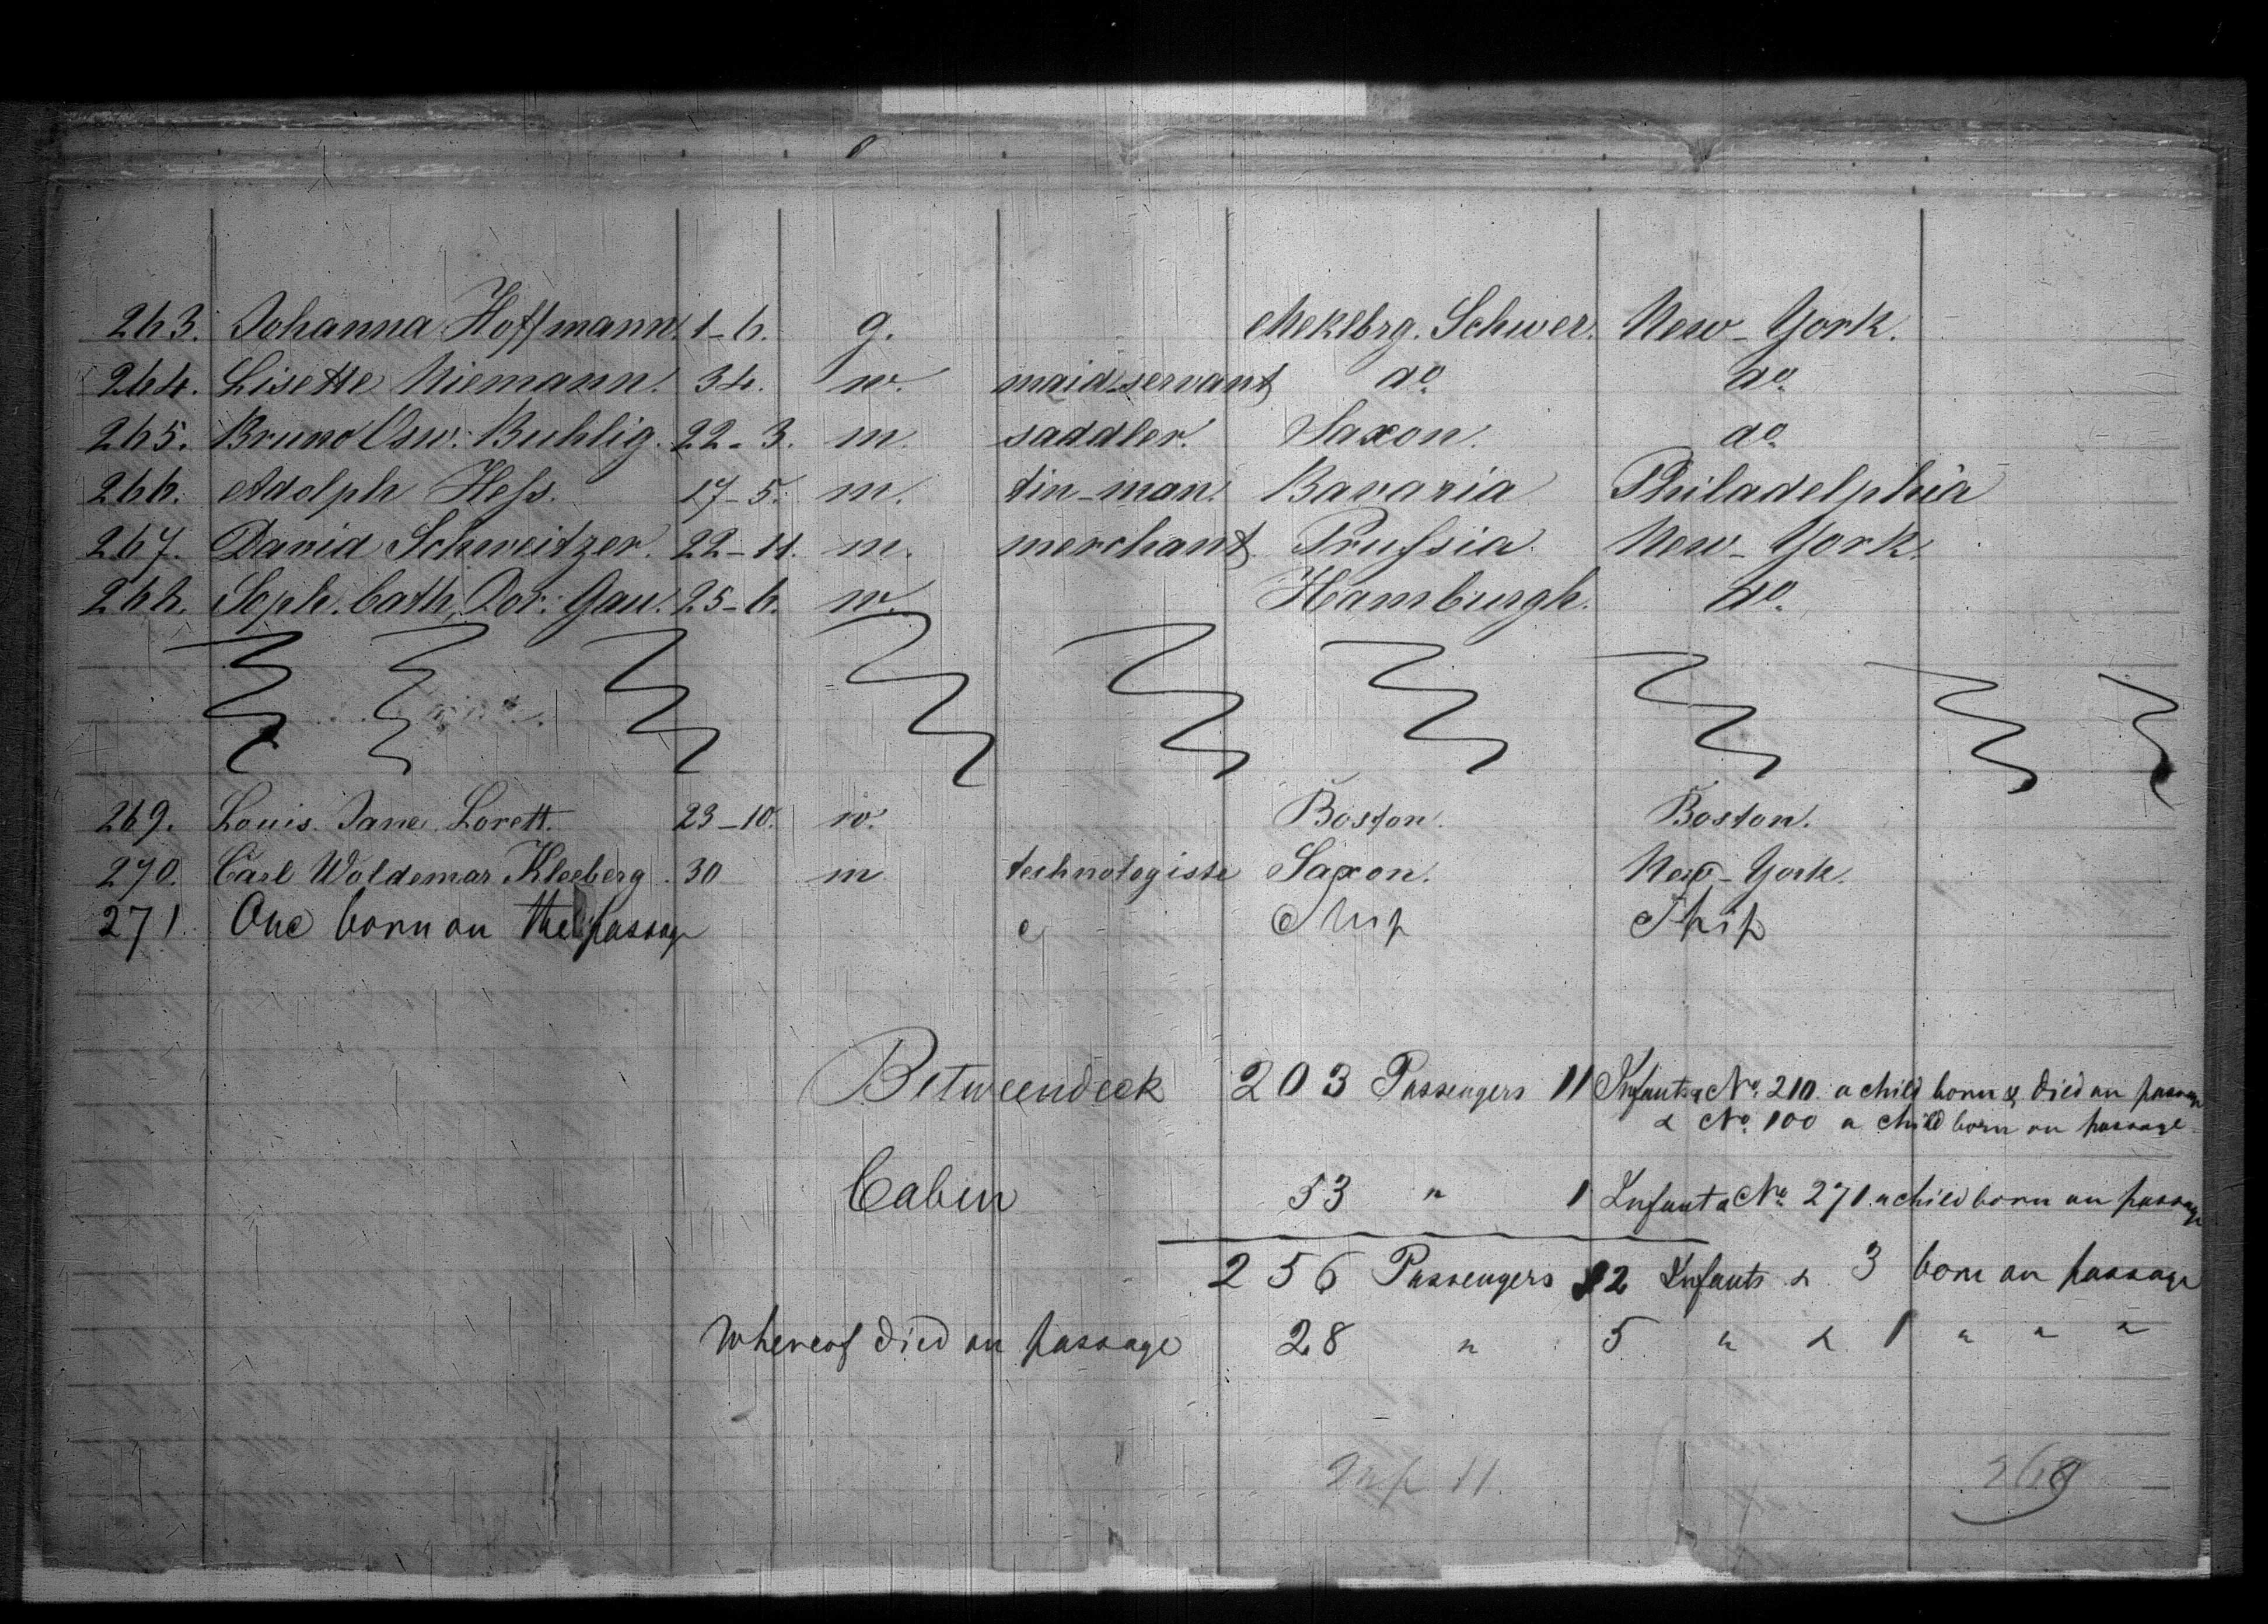 263. Johanna Hoffmann. 1-6. g. Meklbrg. Schwer. New-York.
264. Lisette Niemann. 34. w. maidservant do. do.
265. Bruno Osw: Buhlig. 22-3. m. saddler. Saxon. do.
266. Adolph Heſs. 17-5. m. tin-man. Bavaria Philadelphia
267. David Schweitzer. 22-11. m. merchant Pruſsia. New-York.
268. Soph. Cath. Dor: Gau. 25-6. w. Hamburgh. do.
269. Louis. Jane. Lorett. 23-10. w. Boston. Boston.
270. Carl Woldemar Kleeberg. 30 m technologiste Saxon. New-York.
271. One born on the passage Ship Ship
Betweendeck 203 Passengers 11 Infants & No. 210. a child born & died on passage
& No. 100 a child born on passage
Cabin 53 " 1 Infant & No. 271. a child born on passage
256 Passengers 12 Infants & 3 born on passage
Whereof died on passage 28 " 5 " & 1 " " "
Inf. 11.
268